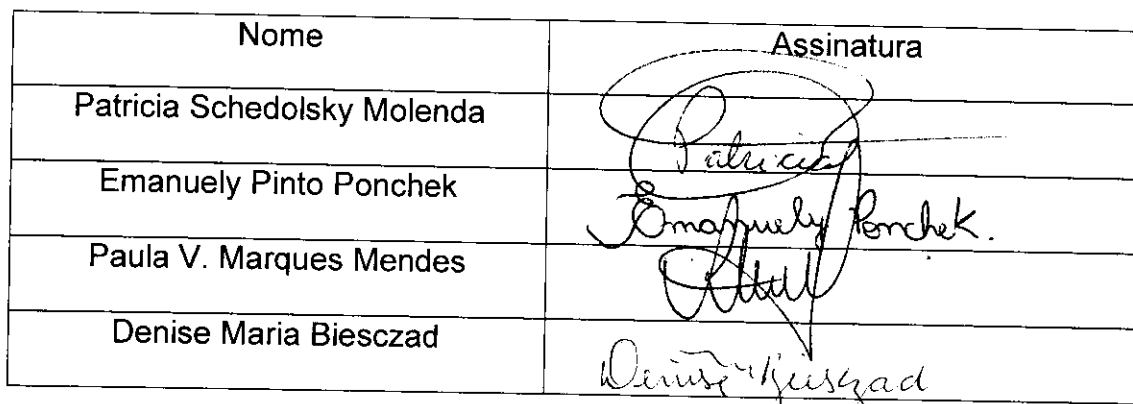 Nome Assinatura
Patricia Schedolsky Molenda Patricia
Emanuely Pinto Ponchek Emanuely Ponchek.
Paula V. Marques Mendes
Denise Maria Biesczad Denise Biesczad